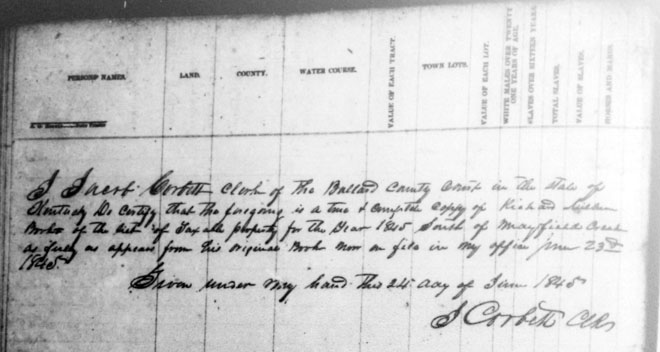 PERSONS' NAMES. LAND. COUNTY. WATER COURSE. VALUE OF EACH TRACT. TOWN LOTS. VALUE OF EACH LOT. WHITE MALES OVER TWENTY ONE YEARS OF AGE. SLAVES OVER SIXTEEN YEARS. TOTAL SLAVES. VALUE OF SLAVES. HORSES AND MARES.
I Jacob Corbett Clerk of the Ballard County Court in the State of
Kentucky Do Certify that the foregoing is a true & complete Copy of Richard
Book of the List of Taxable property for the Year 1845 South of Mayfield Creek
as fully as appears from his original Book now on file in my office June 23rd
1845
Given under my hand this 24 day of June 1845
J Corbett Clk